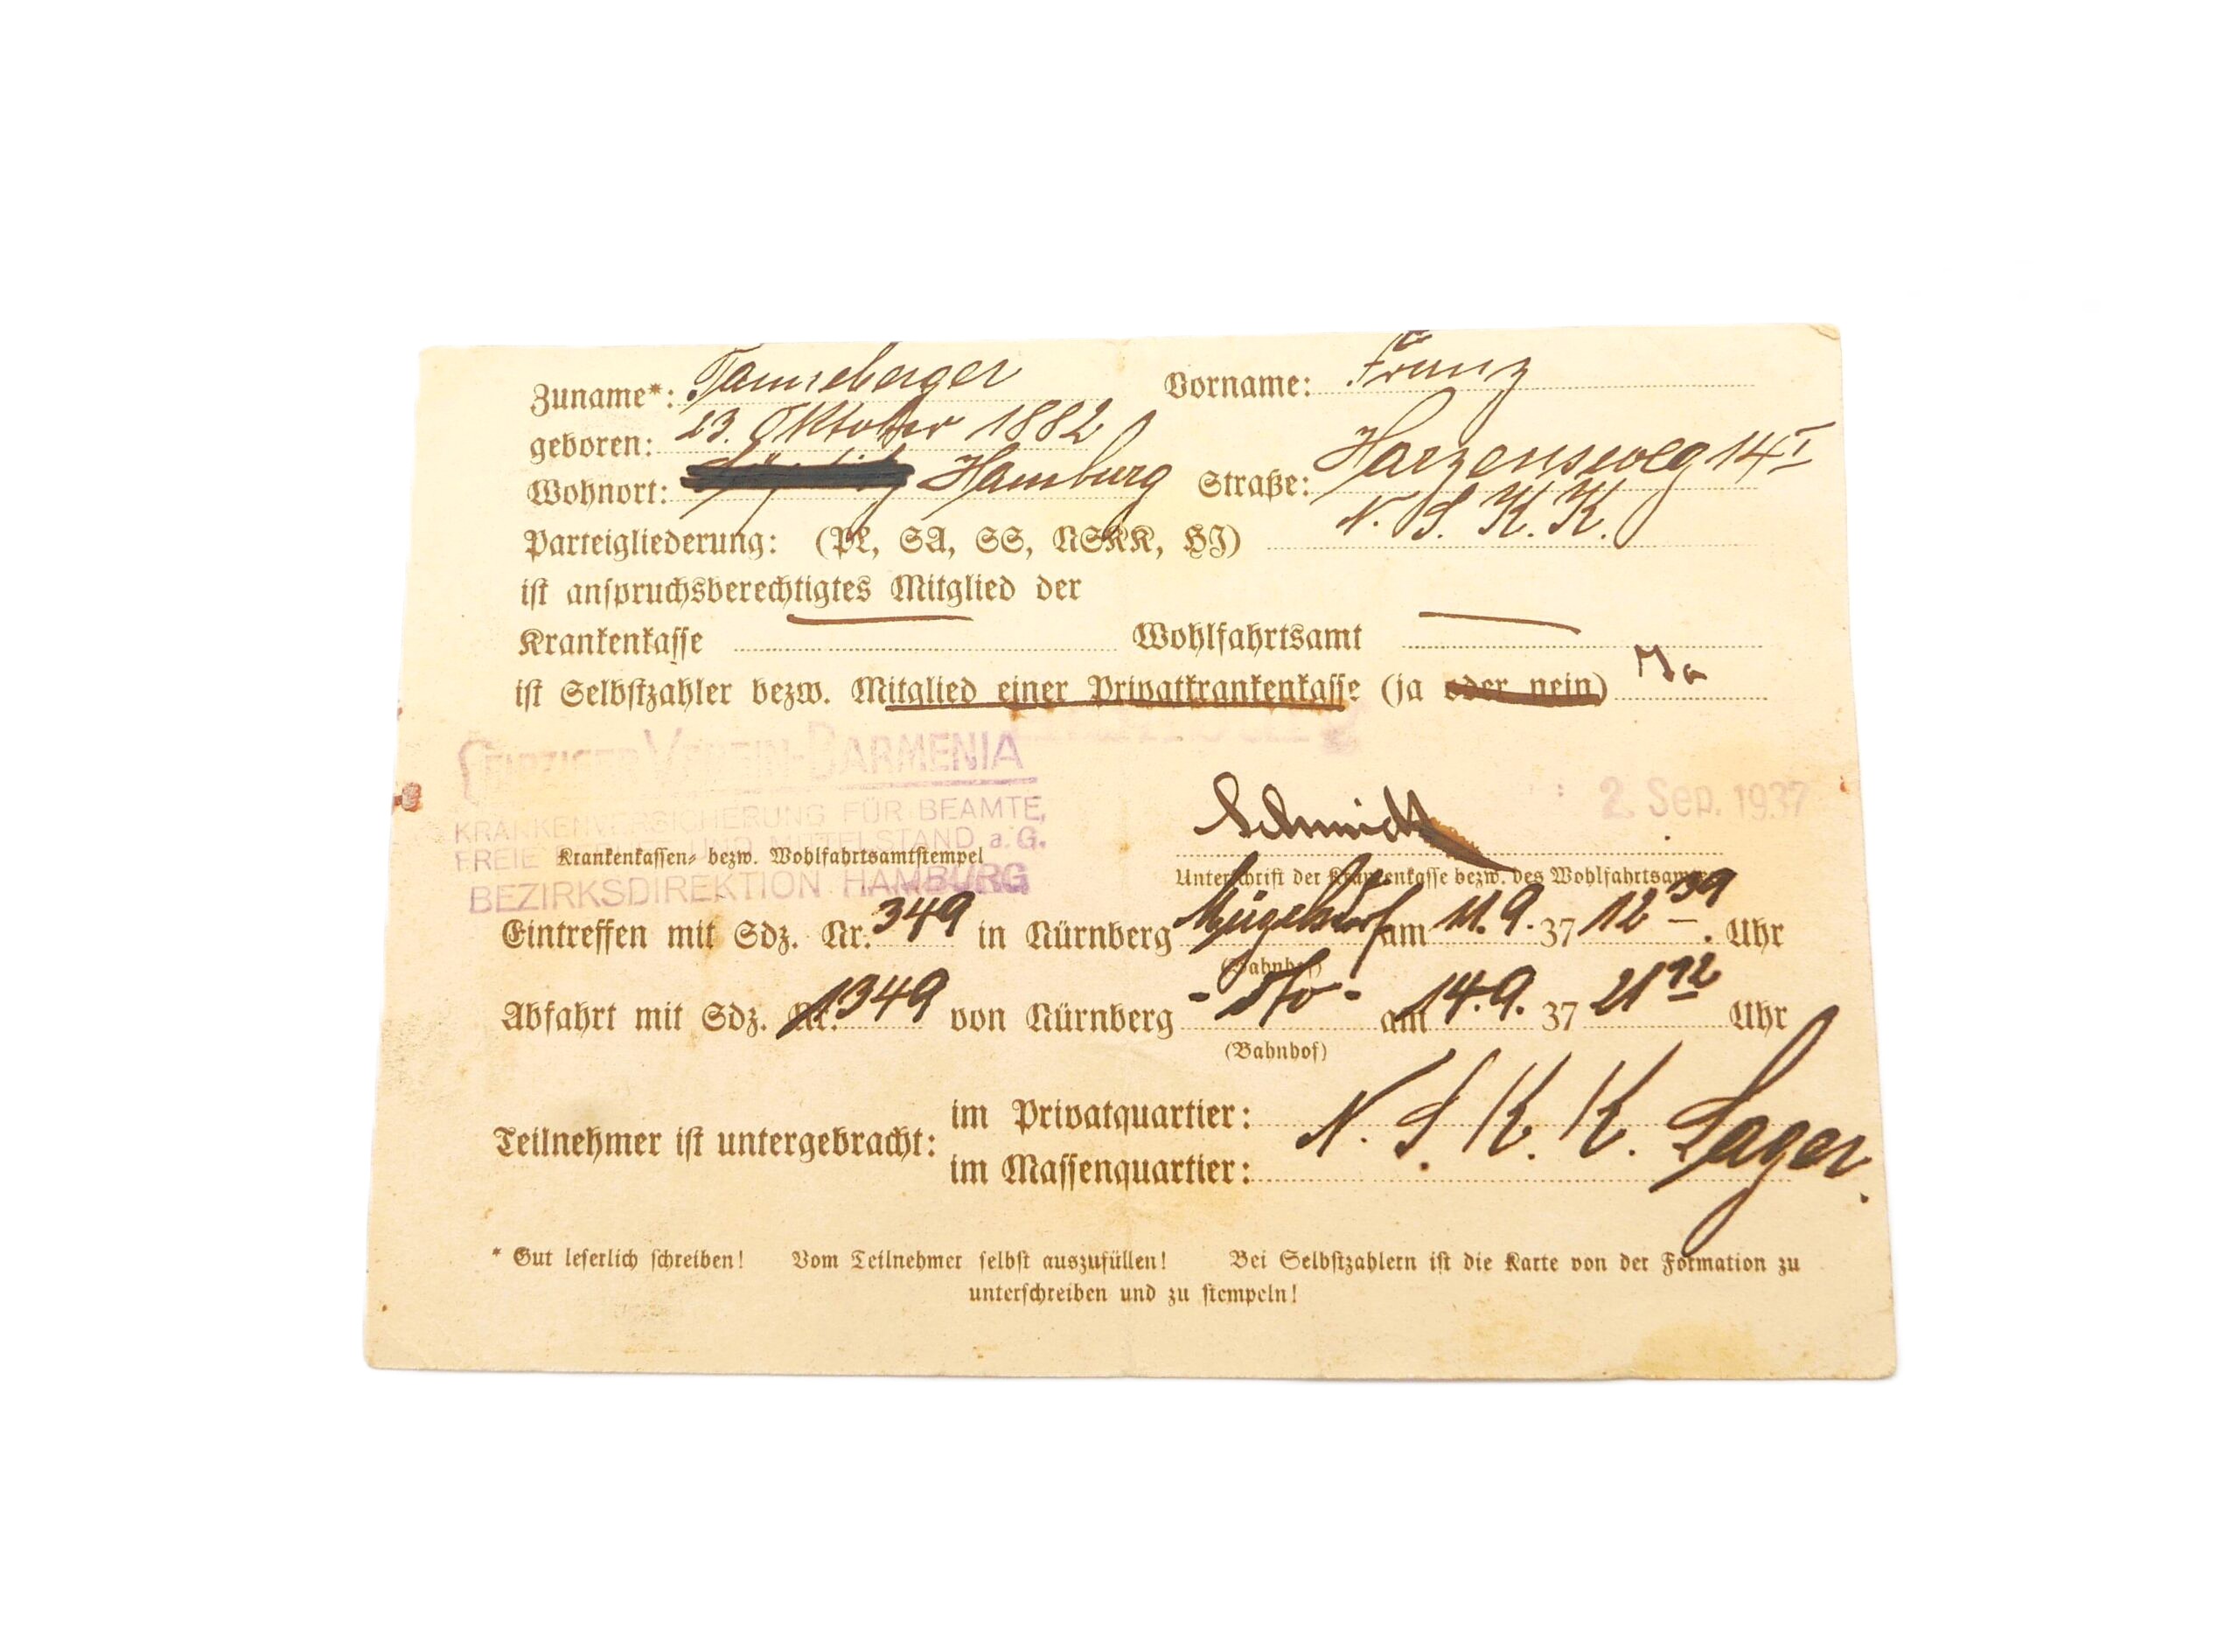 Zuname*: Tanneberger Vorname: Franz
geboren: 23. Oktober 1882
Wohnort: Hamburg Straße: Harzensweg 14 I
Parteigliederung: (PL, SA, SS, NSKK, HJ) N. S. K. K.
ist anspruchsberechtigtes Mitglied der
Krankenkasse Wohlfahrtsamt
ist Selbstzahler bezw. Mitglied einer Privatkrankenkasse (ja oder nein) Ja
LEIPZIGER VEREIN-BARMENIA
2. Sep. 1937
KRANKENVERSICHERUNG FÜR BEAMTE,
Schmidt
FREIE BERUFE UND MITTELSTAND a. G.
Krankenkassen- bezw. Wohlfahrtsamtstempel
Unterschrift der Krankenkasse bezw. des Wohlfahrtsamtes
BEZIRKSDIREKTION HAMBURG
Eintreffen mit Sdz. Nr. 349 in Nürnberg am 11. 9. 37 12 39 Uhr
(Bahnhof)
Abfahrt mit Sdz. Nr. 1349 von Nürnberg - dto - am 14. 9. 37 21 12 Uhr
(Bahnhof)
Teilnehmer ist untergebracht: im Privatquartier: N. S. K. K. Lager.
im Massenquartier:
* Gut leserlich schreiben! Vom Teilnehmer selbst auszufüllen! Bei Selbstzahlern ist die Karte von der Formation zu
unterschreiben und zu stempeln!